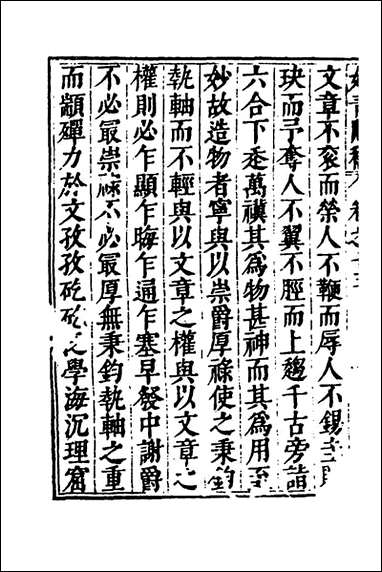 文章不衮而榮人不鞭而辱人不錫
玦而予奪人不翼不脛而上趨千古旁詰
六合下垂萬禩其爲物甚神而其爲用至
妙故造物者寧與以崇爵厚祿使之秉鈞
執軸而不輕與以文章之權與以文章之
權則必乍顯乍晦乍通乍塞早發中謝爵
不必最崇祿不必最厚無秉鈞執軸之重
而顓殫力於文孜孜矻矻之學海沉理窟